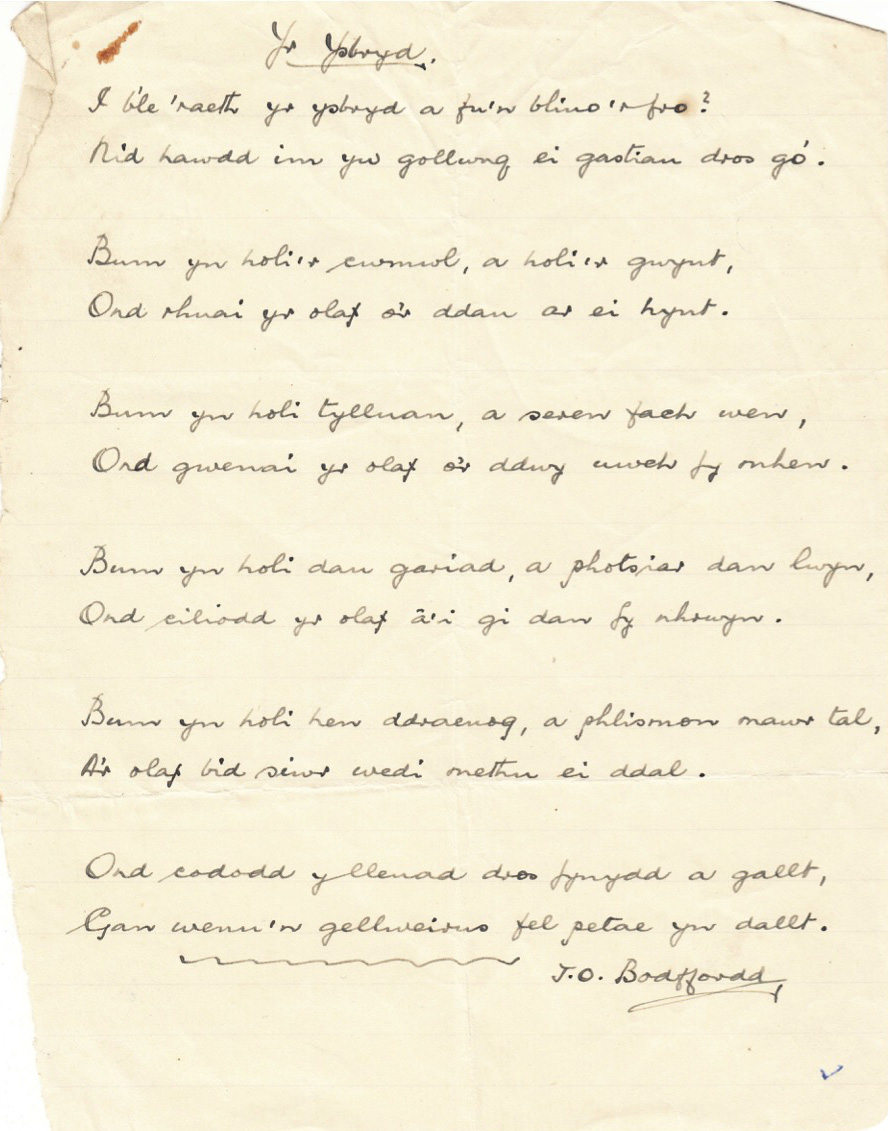 Yr Ysbryd.
I b'le 'raeth yr ysbryd a fu'n blino'r fro?
Nid hawdd im yw gollwng ei gastiau dros gó.
Bum yn holi'r cwmwl, a holi'r gwynt,
Ond rhuai yr olaf o'r ddau ar ei hynt.
Bum yn holi tylluan, a seren fach wen,
Ond gwenai yr olaf o'r ddwy uwch fy mhen.
Bum yn holi dau gariad, a photsiar dan lwyn,
Ond ciliodd yr olaf â'i gi dan fy nhrwyn.
Bum yn holi hen ddraenog, a phlismon mawr tal,
A'r olaf bid siwr wedi methu ei ddal.
Ond cododd y lleuad dros fynydd a gallt,
Gan wenu'n gellweirus fel petae yn dallt.
J.O. Bodffordd,